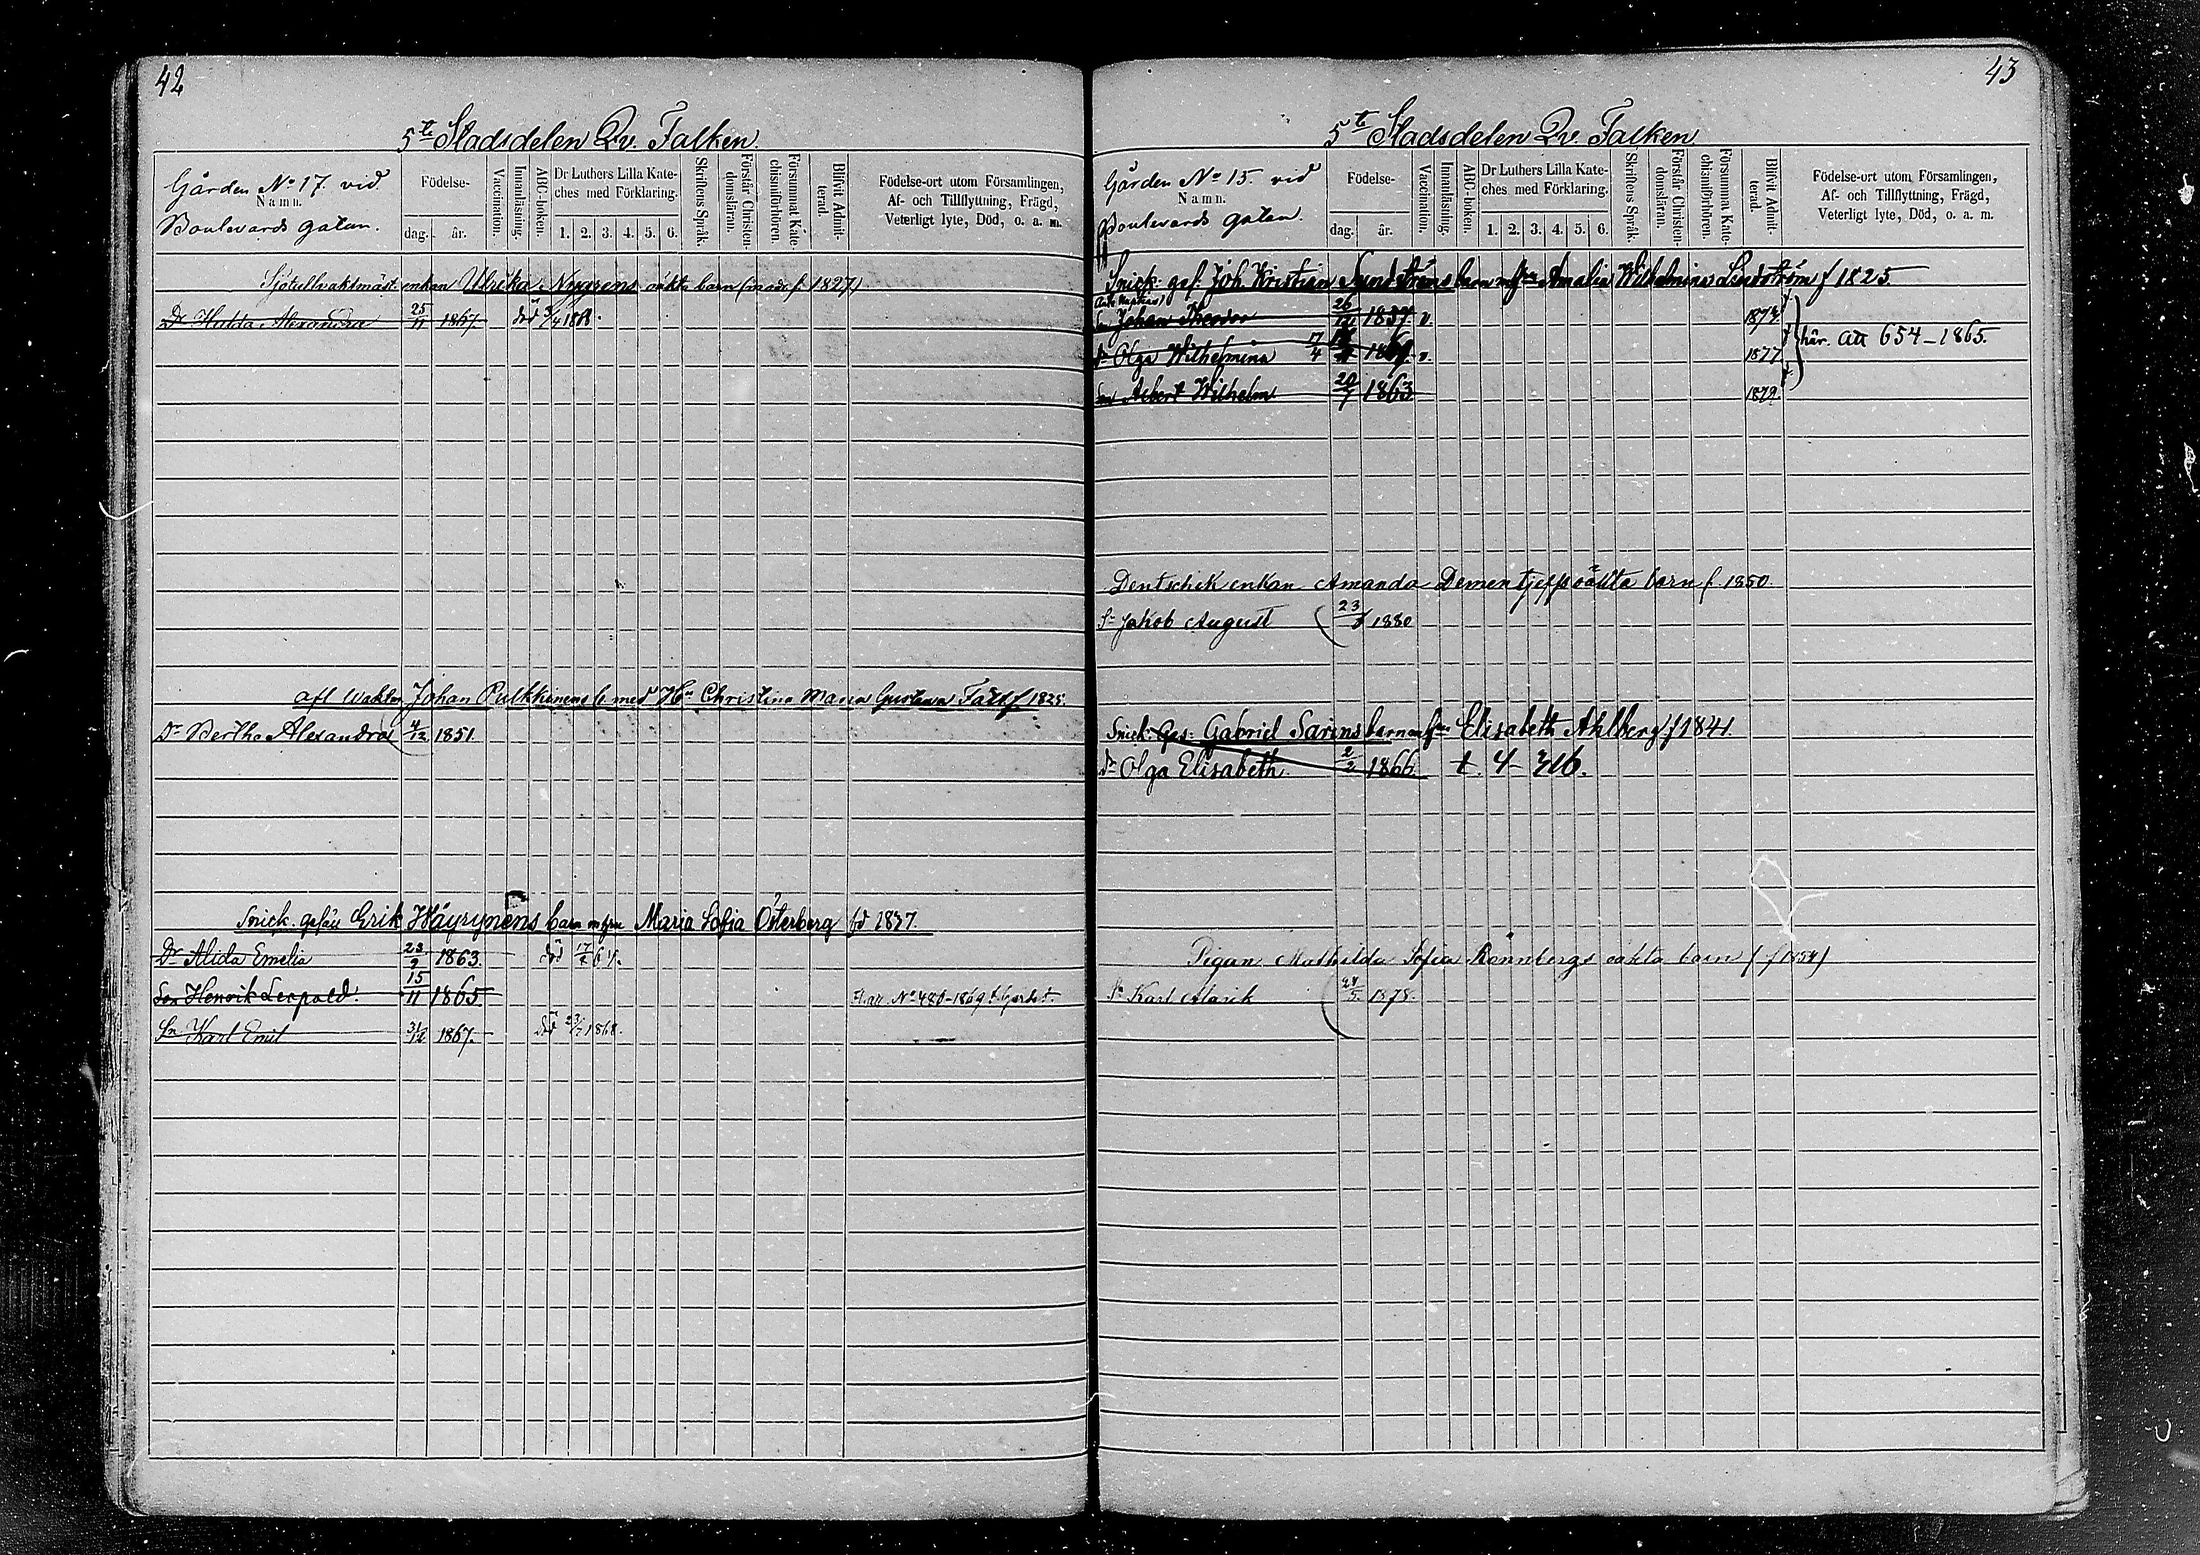 42
5te Stadsdelen Qv. Falken.
Gården No 17. vid
Namn.
Boulevards gatan.
Födelse-
dag. år.
Vaccination.
Innanläsning.
ABC-boken.
Dr Luthers Lilla Kate-
ches med Förklaring.
1. 2. 3. 4. 5. 6.
Skriftens Språk.
Förstår Christen-
domsläran.
Försummat Kate-
chismiförhören.
Blifvit Admit-
terad.
Födelse-ort utom Församlingen,
Af- och Tillflyttning, Frägd,
Veterligt lyte, Död, o. a. m.
Sjötullvaktmäst. enkan Ulrika Nygrens oäkta barn (mod. f. 1827)
Dr Hulda Alexandra 25/11 1867. död 3/4 1868.
afl Wakten Johan Pulkkinens b med Hu Christina Maria Gustava f 1825.
Dr Bertha Alexandra 4/12 1851.
Snick. gesäll Erik Häyrynens barn m hu Maria Sofia Österberg fd 1837.
Dr Alida Emelia 23/2 1863. död 17/ 67.
Son Henrik Leopold. 15/11 1865. No 480-1869
Sn Karl Emil 31/12 1867. död 23/7 1868.
43
5te Stadsdelen Qv. Falken
Gården No 15. vid
Namn.
Boulevards gatan.
Födelse-
dag. år.
Vaccination.
Innanläsning.
ABC-boken.
Dr Luthers Lilla Kate-
ches med Förklaring.
1. 2. 3. 4. 5. 6.
Skriftens Språk.
Förstår Christen-
domsläran.
Försummat Kate-
chismiförhören.
Blifvit Admit-
terad.
Födelse-ort utom Församlingen,
Af- och Tillflyttning, Frägd,
Veterligt lyte, Död, o. a. m.
Snick. ges. Joh Kristian Sundströms barn m hu Amalia Wilhelmina Lindström f 1825
Sn Johan Theodor 26/12 1857. v. 1874
Dr Olga Wilhelmina 17/4 v. 1877. här. att 654-1865.
Son Albert Wilhelm 20/7 1863. 1879.
Dentschik enkan Amanda Dementjeffs oäkta barn f. 1850.
Sn Jakob August 23/ 1880
Snick: Ges: Gabriel Sarins barn m hu Elisabeth Ahlberg f 1841.
Dr Olga Elisabeth. 2/2 1866. t. 4- 316.
Pigan Mathilda Sofia Rönnbergs oäkta barn (f 1854)
Sn Karl Alarik 24/5. 1878.